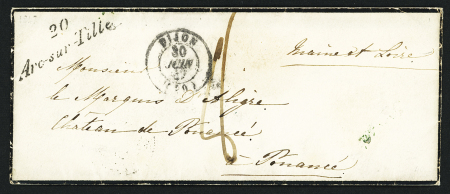 20
Arc-sur-Tille
DIJON
30
JUIN
(20)
Maine et Loire
Monsieur
le Marquis D'Aligre
Château de Pouancé
à Pouancé